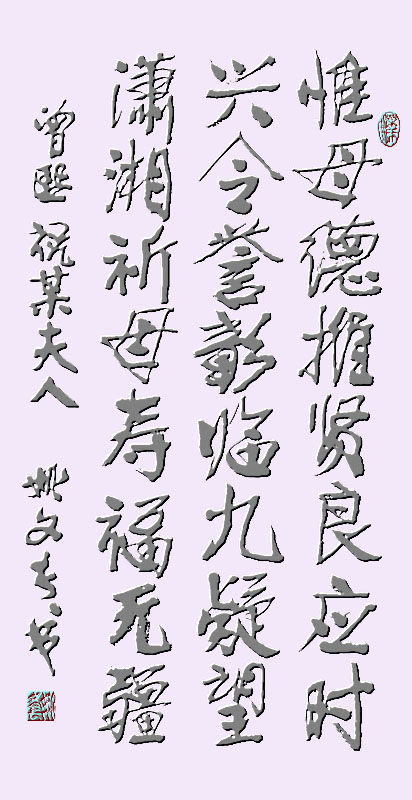 惟母德推贤良应时
兴令誉彰临九疑望
潇湘祈母寿福无疆
曾熙 祝某夫人 姚文奇书